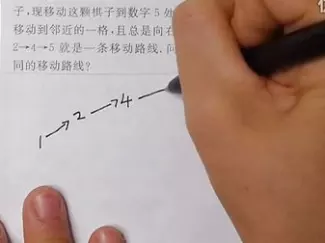 子,现移动这颗棋子到数字5处
移动到邻近的一格,且总是向右
2→4→5就是一条移动路线.问
同的移动路线?
1→2→4—